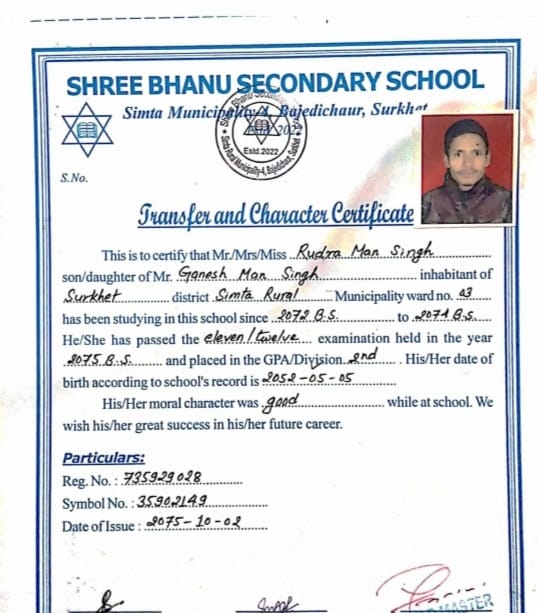 SHREE BHANU SECONDARY SCHOOL
Simta Municipality-4, Bajedichaur, Surkhet
Estd. 2022
S.No.
Transfer and Character Certificate
This is to certify that Mr/Mrs/Miss Rudra Man Singh
son/daughter of Mr. Ganesh Man Singh inhabitant of
Surkhet district Simta Rural Municipality ward no. 03
has been studying in this school since 2072 B.S. to 2074 B.S.
He/She has passed the eleven/twelve examination held in the year
2075 B.S. and placed in the GPA/Division 2nd. His/Her date of
birth according to school's record is 2052-05-05
His/Her moral character was good while at school. We
wish his/her great success in his/her future career.
Particulars:
Reg. No. : 735929028
Symbol No. : 35902149
Date of Issue : 2075-10-02
MASTER